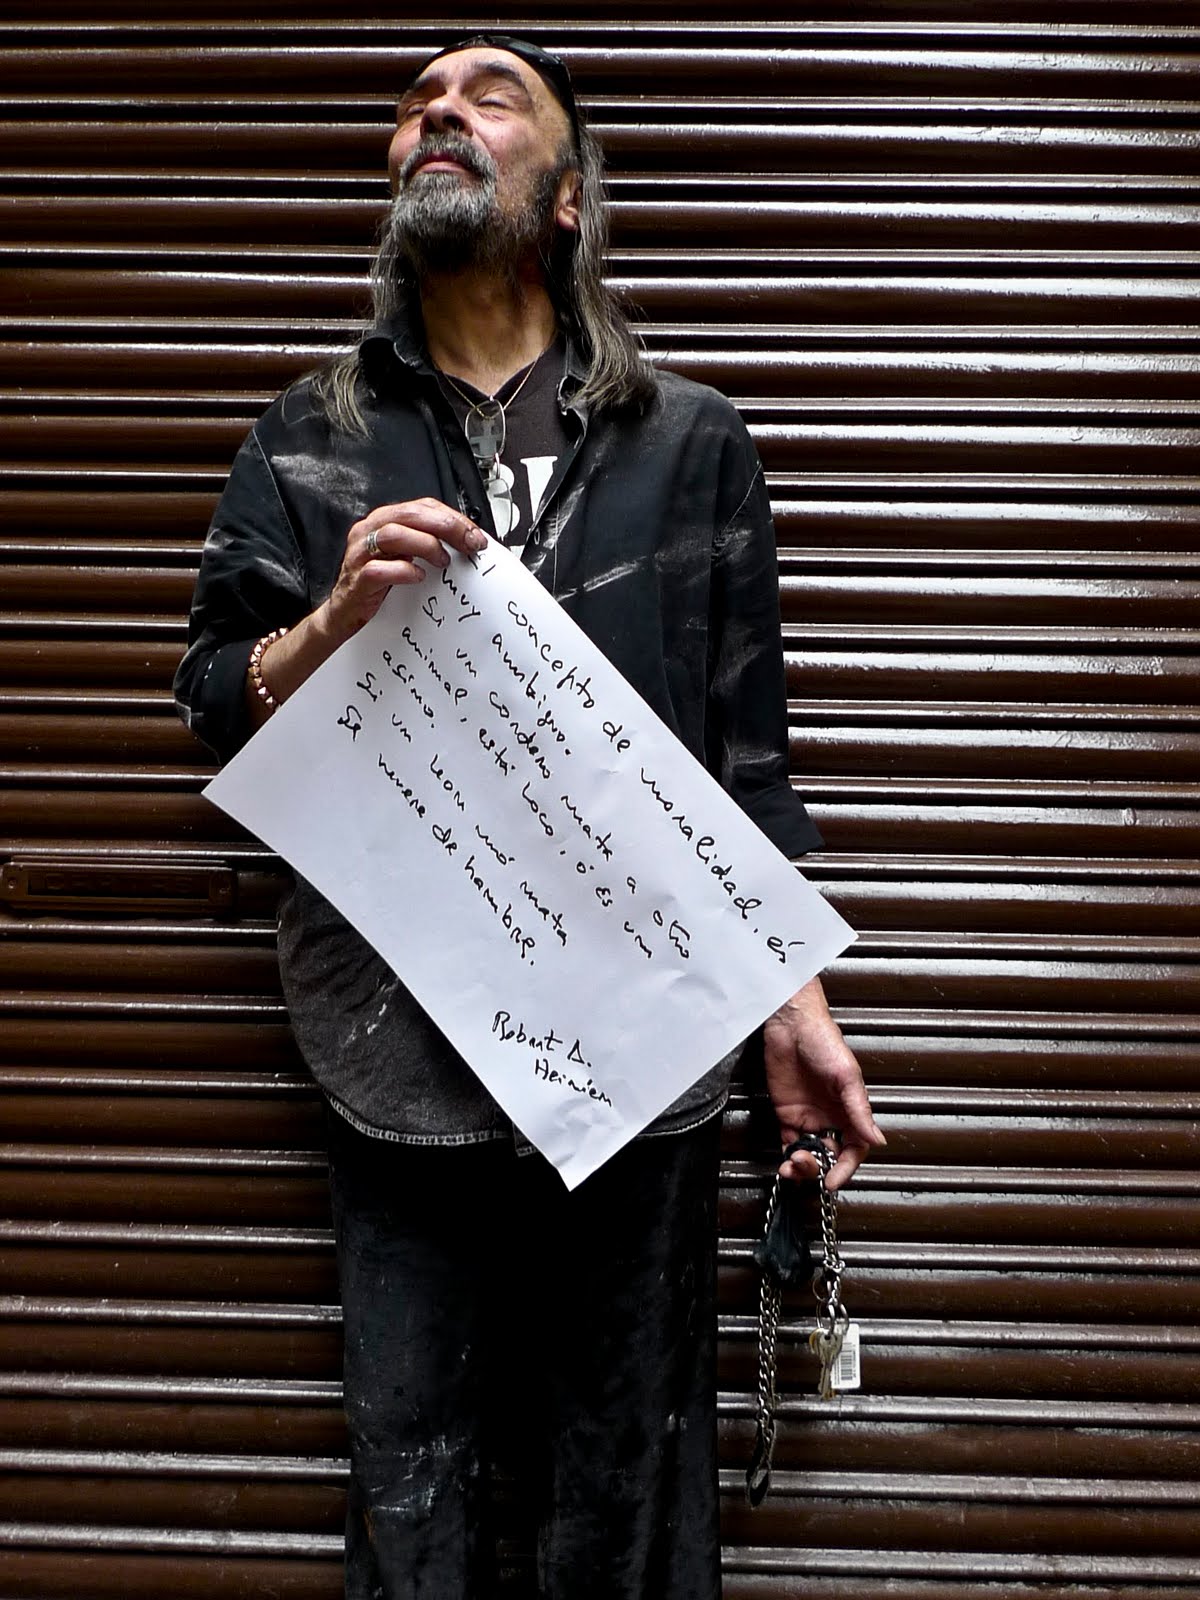 El concepto de moralidad, es
muy ambiguo.
Si un cordero mata a otro
animal, está loco, ó es un
asino.
Si un leon nó mata
Se muere de hambre.
Robert A.
Heinien